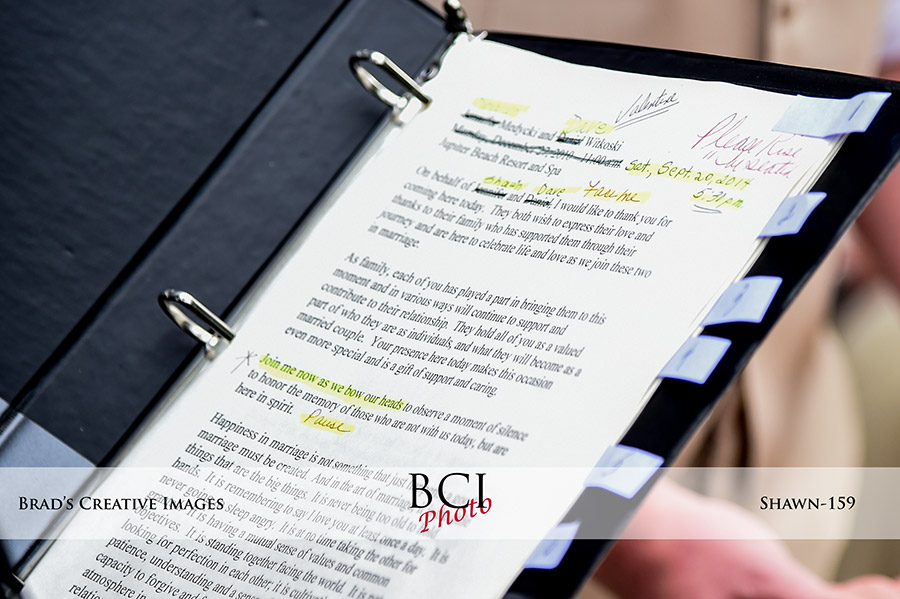 Valentine
Dave
Medycki and David Witkoski
Monday, December 27, 2010 - 11:00 a.m. Sat., Sept. 20, 2014
Jupiter Beach Resort and Spa
5:31 p.m.
Please Rise
1
Shash Dave
On behalf of Jennifer and David, I would like to thank you for
coming here today. They both wish to express their love and
thanks to their family who has supported them through their
journey and are here to celebrate life and love as we join these two
in marriage.
As family, each of you has played a part in bringing them to this
moment and in various ways will continue to support and
contribute to their relationship. They hold all of you as a valued
part of who they are as individuals, and what they will become as a
married couple. Your presence here today makes this occasion
even more special and is a gift of support and caring.
Join me now as we bow our heads to observe a moment of silence
to honor the memory of those who are not with us today, but are
here in spirit. Pause
Happiness in marriage is not something that just
marriage must be created. And in the art of marriage
things that are the big things. It is never being too old to
hands. It is remembering to say I love you at least once a day. It is
never going to sleep angry. It is at no time taking the other for
It is having a mutual sense of values and common
objectives. It is standing together facing the world. It is
looking for perfection in each other, it is
patience, understanding and a
capacity to forgive
atmosphere in
Brad's Creative Images
BCI
Photo
Shawn-159